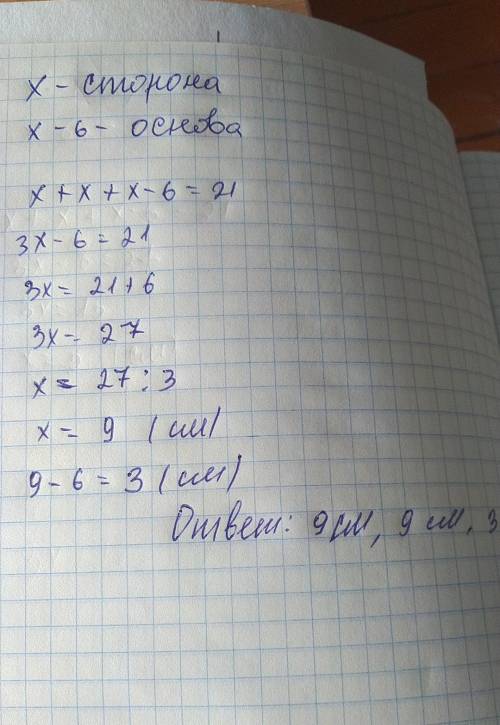 х - сторона
х - 6 - основа
х + х + х - 6 = 21
3х - 6 = 21
3х = 21 + 6
3х = 27
х = 27 : 3
х = 9 (см)
9 - 6 = 3 (см)
Ответ: 9 см, 9 см, 3